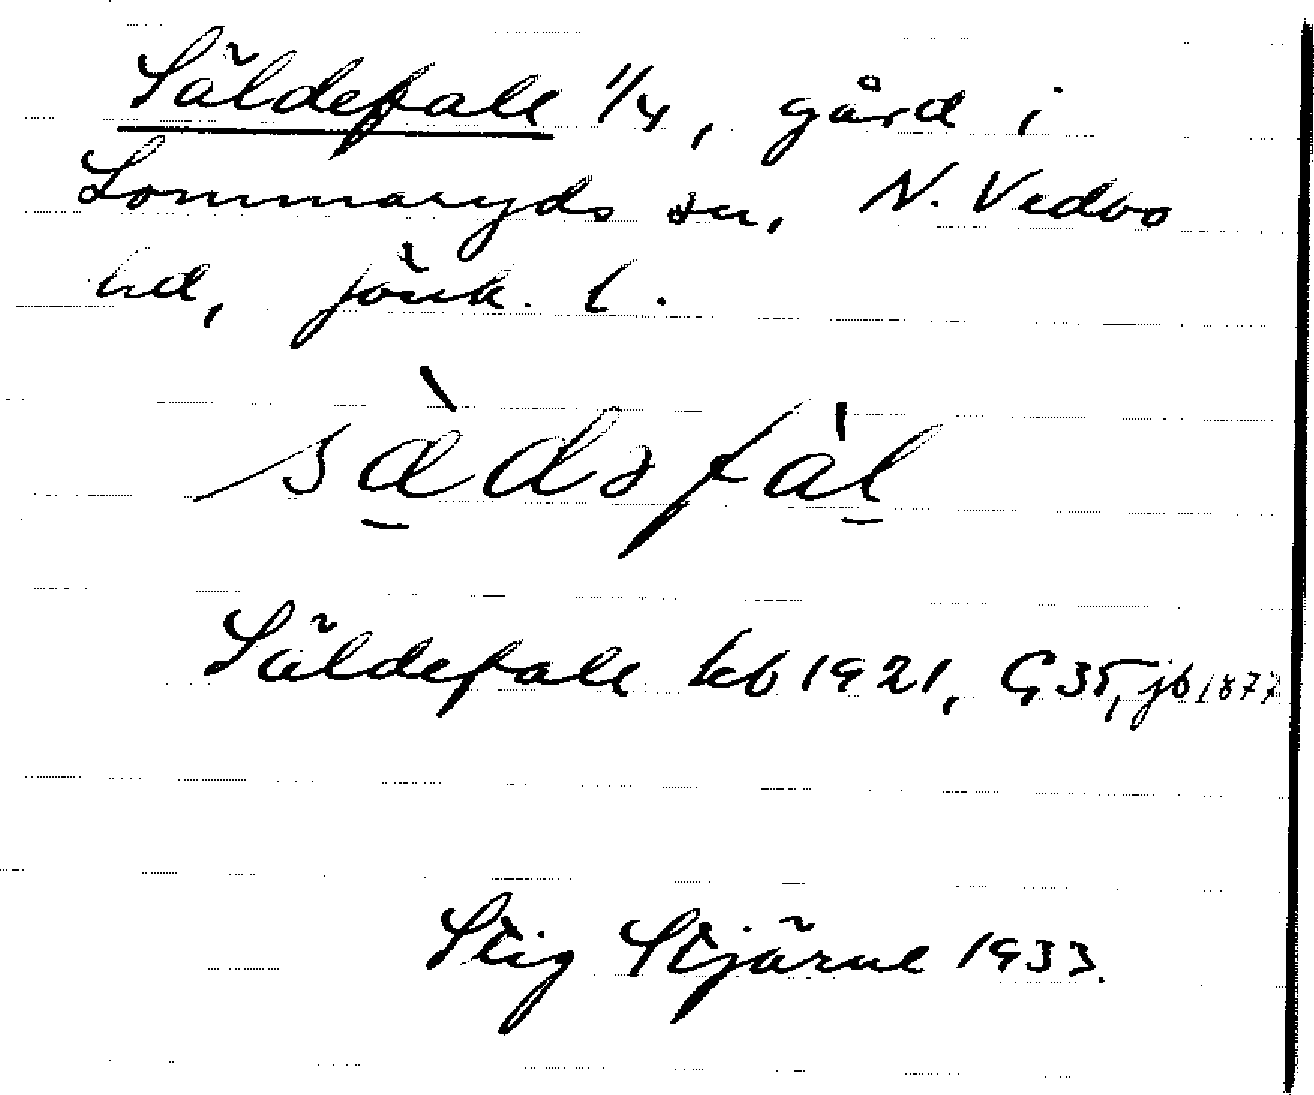 Säldefall 1/4, gård i
Lommaryds sn, N. Vedbo
hd, Jönk. l.
sæ̀dəfàl
Säldefall kb 1921, G 35, jb 1877
Stig Stjärne 1933.